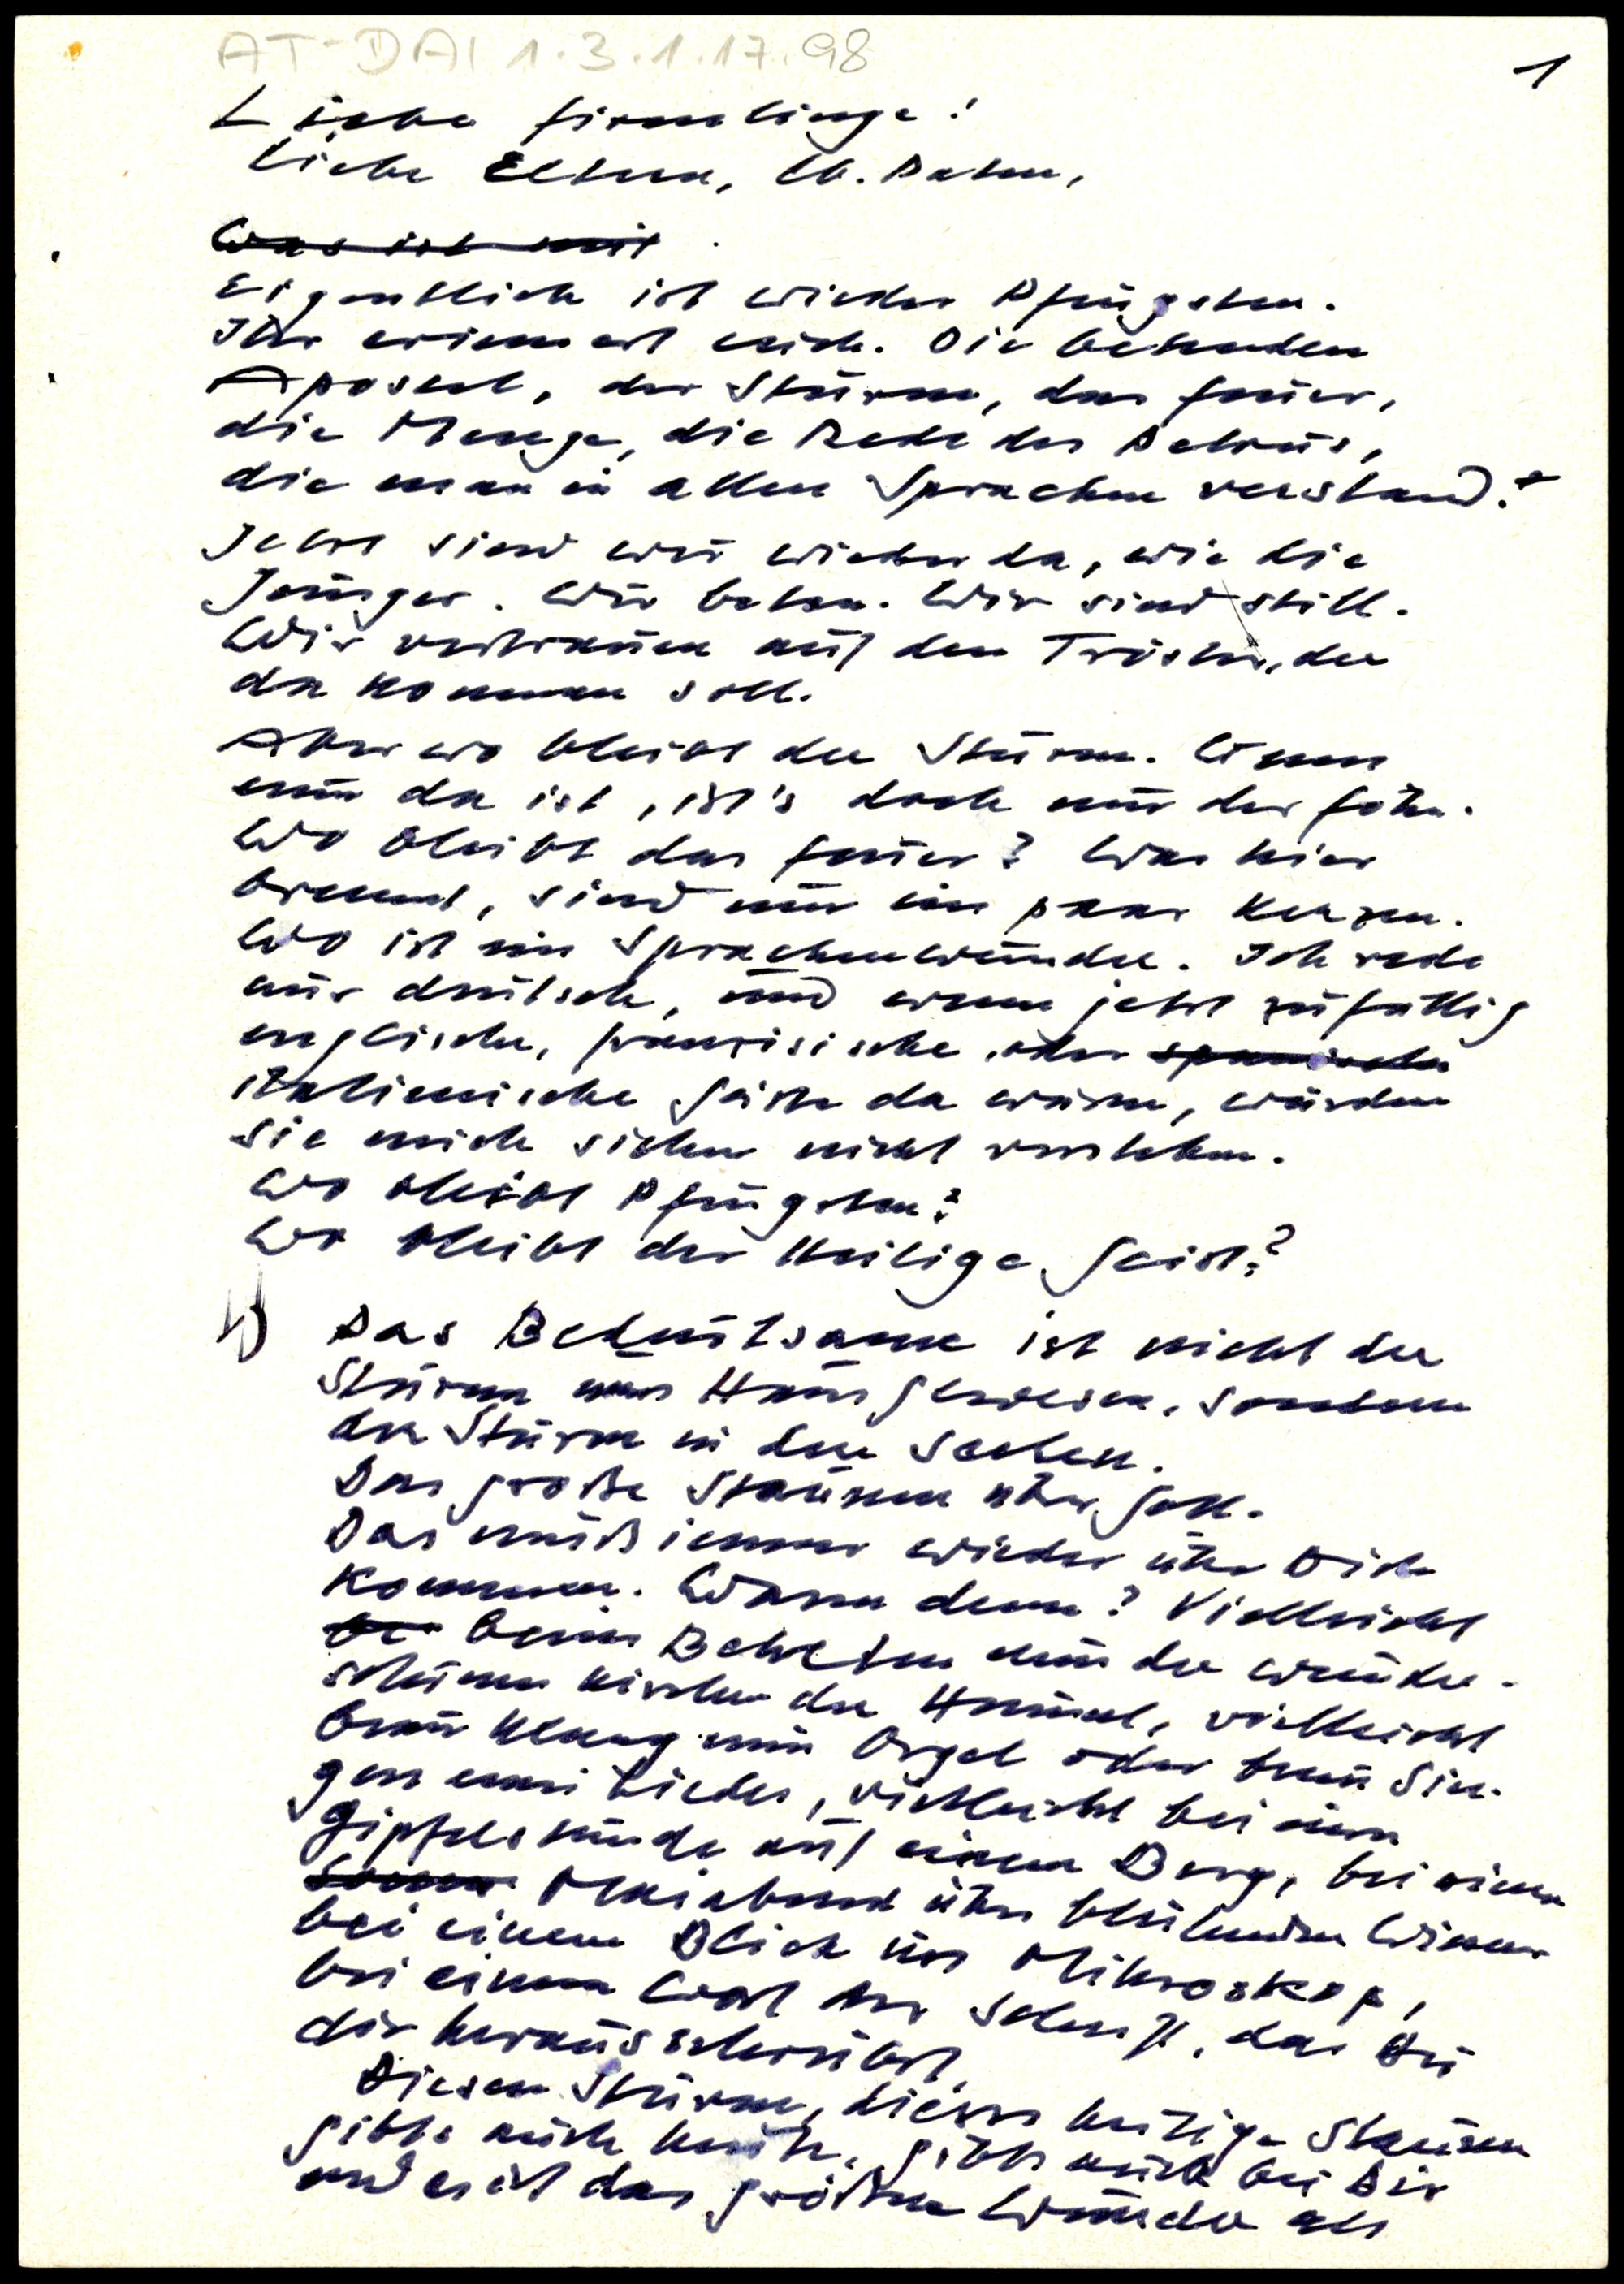 AT-DAI 1.3.1.17.98
1
Liebe Firmlinge!
Liebe Eltern, lb. Paten,
Was ist mit
Eigentlich ist wieder Pfingsten.
Ihr erinnert euch. Die betenden
Apostel, der Sturm, das Feuer,
die Menge, die Rede des Petrus,
die man in allen Sprachen verstand.
Jetzt sind wir wieder da, wie die
Jünger. Wir beten. Wir sind still.
Wir vertrauen auf den Tröster, der
da kommen soll.
Aber wo bleibt der Sturm. Wenn
einer da ist, ist's doch nur der Föhn.
Wo bleibt das Feuer? Was hier
brennt, sind nur ein paar Kerzen.
Wo ist ein Sprachenwunder. Ich rede
nur deutsch, und wenn jetzt zufällig
englische, französische oder spanische
italienische Gäste da wären, würden
sie mich sicher nicht verstehen.
Wo bleibt Pfingsten?
Wo bleibt der Heilige Geist?
1) Das Bedeutsame ist nicht der
Sturm ums Haus gewesen, sondern
der Sturm in den Seelen.
Das große Staunen über Gott.
Das muß immer wieder über Dich
kommen. Wann denn? Vielleicht
beim Betreten einer der wunder-
schönen Kirchen der Heimat, vielleicht
beim Klang einer Orgel oder beim Sin-
gen eines Liedes, vielleicht bei einer
Gipfelstunde auf einem Berg, bei einem
Maiabend über blühenden Wiesen
bei einem Blick ins Mikroskop,
bei einem Wort der Schrift, das Du
dir herausschreibst.
Diesen Sturm, dieses heilige Staunen
gibts auch heute, gibts auch bei Dir
und es ist das größere Wunder als